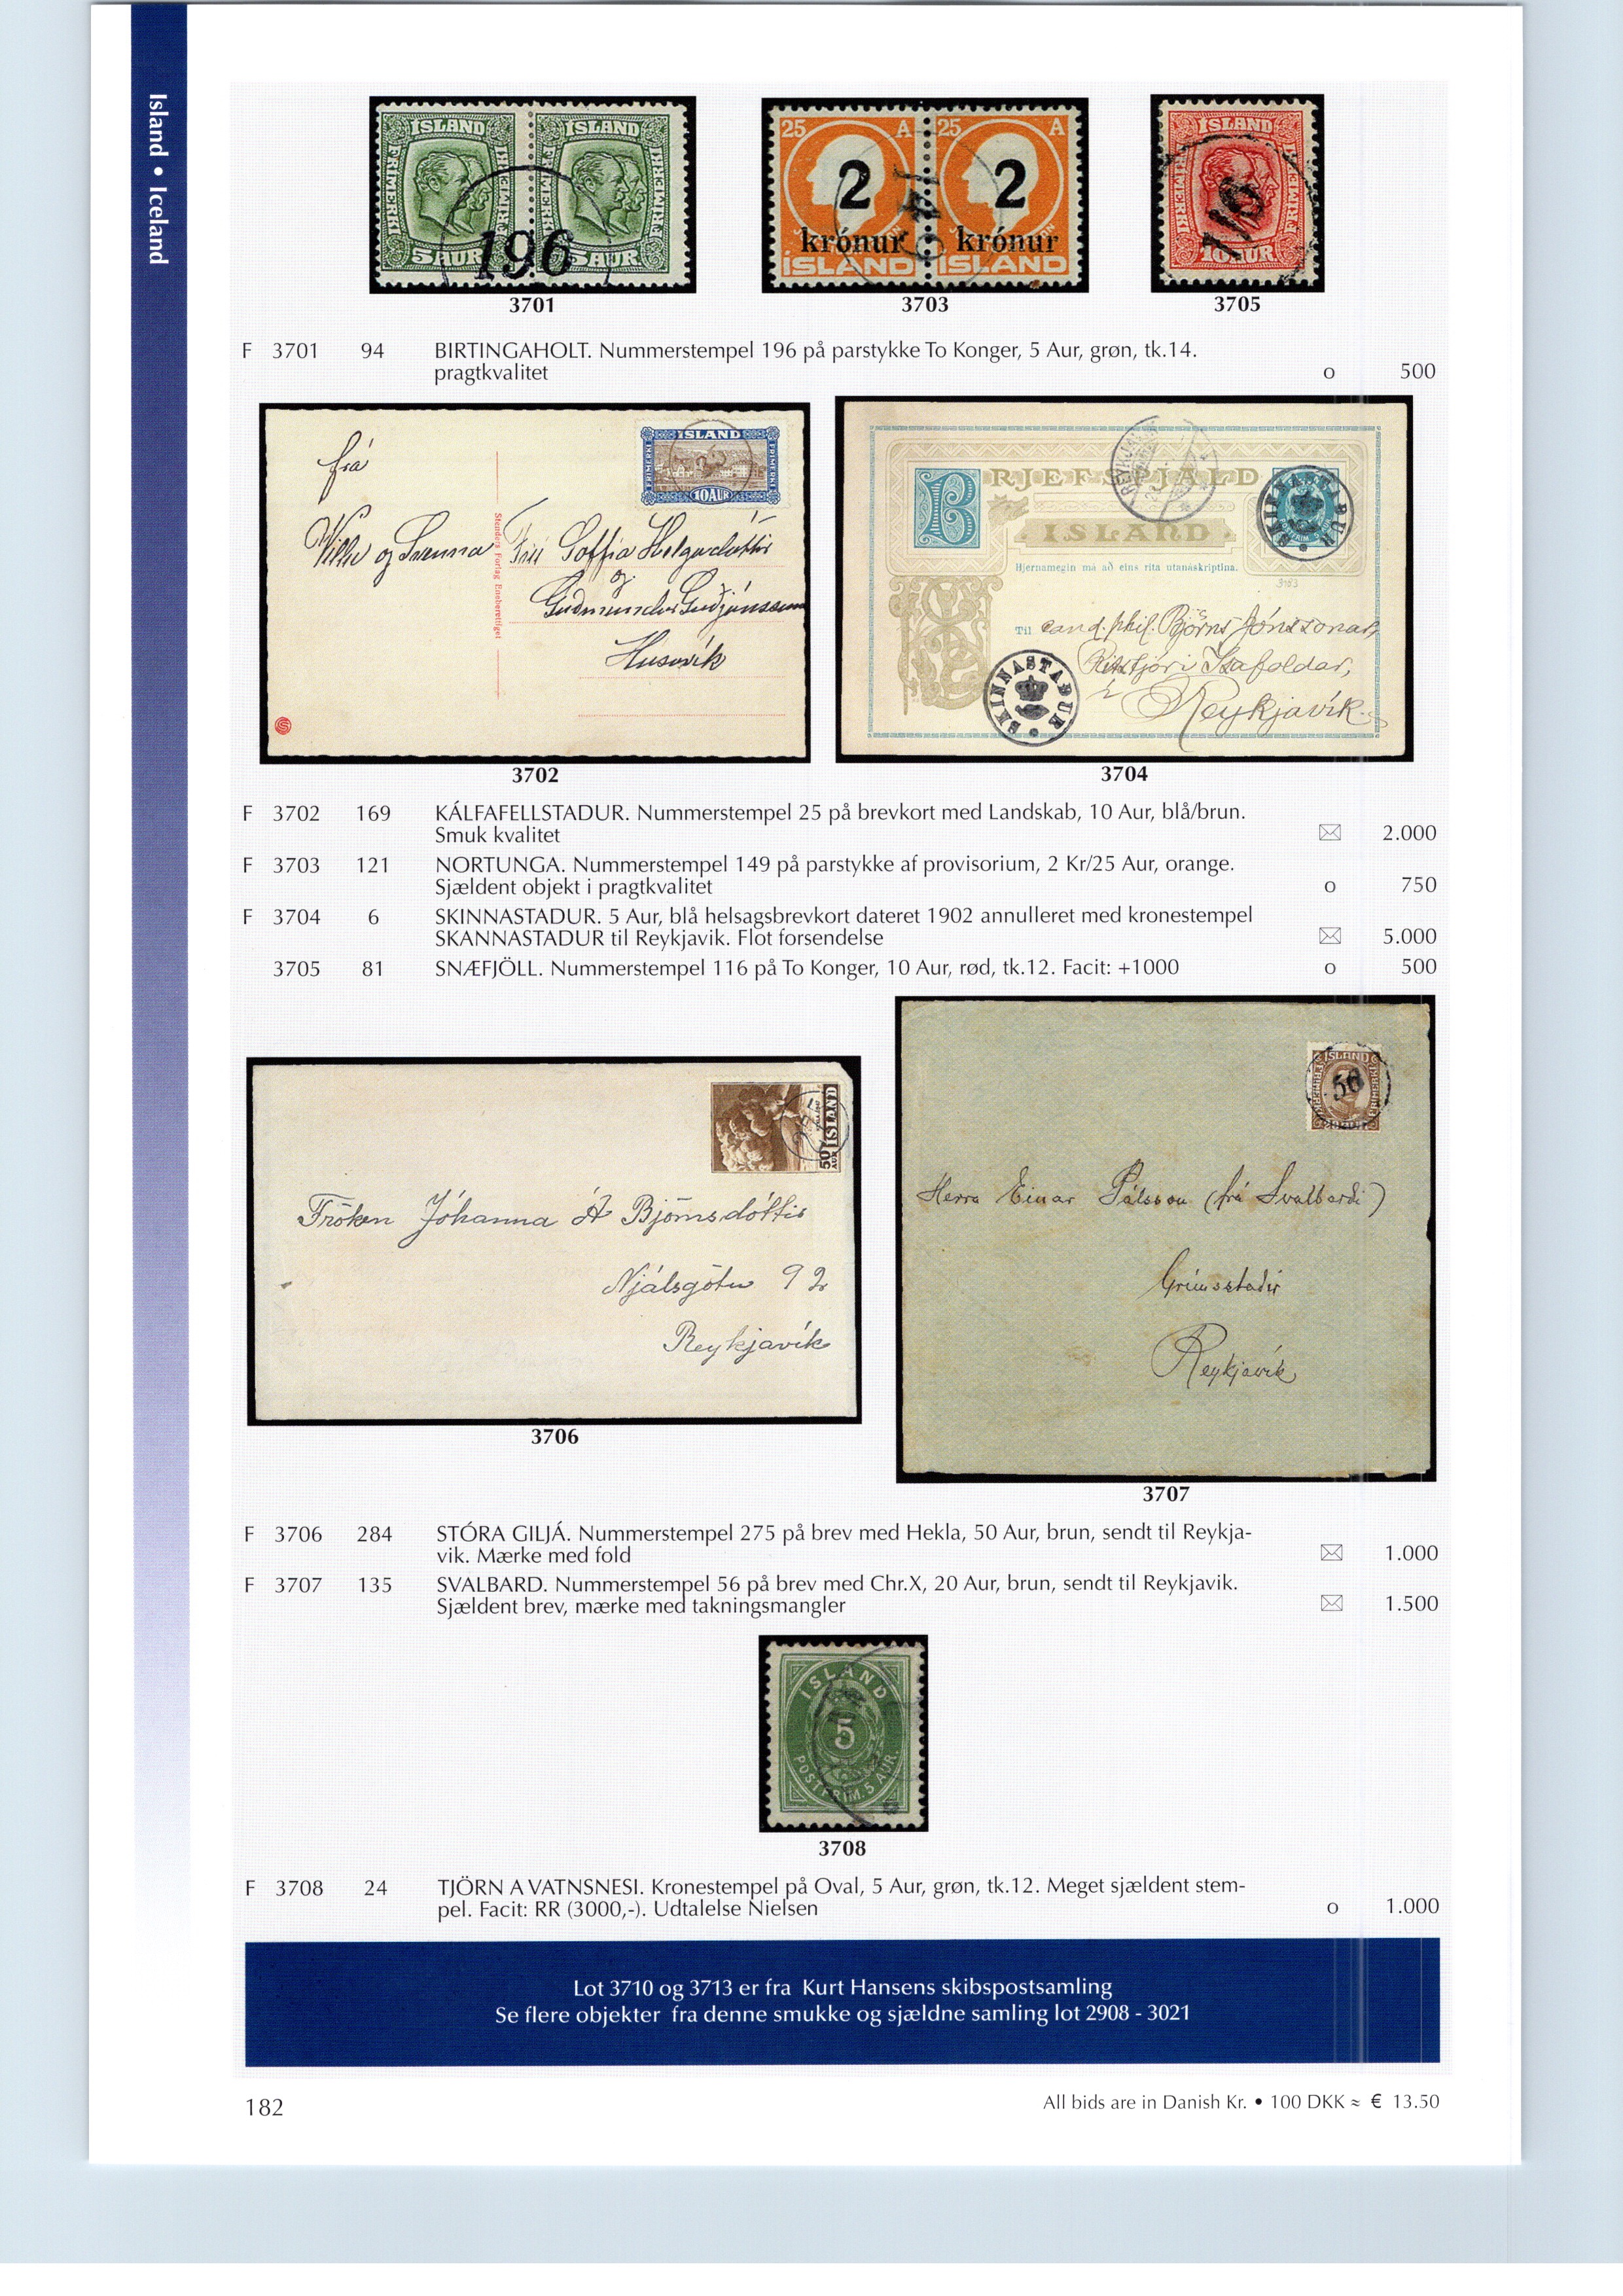 Island • Iceland
ÍSLAND ÍSLAND
5 AUR 5 AUR
196
25 A 25 A
2 2
krónur krónur
ÍSLAND ÍSLAND
ÍSLAND
116
10 AUR
3701 3703 3705
F 3701 94 BIRTINGAHOLT. Nummerstempel 196 på parstykke To Konger, 5 Aur, grøn, tk.14.
pragtkvalitet o 500
ÍSLAND
FRIMERKI FRIMERKI
10 AUR
frá
Villu og Sunnu
Stenders Forlag Eneberettiget
Soffía Helgadóttir
og
Guðmundur Guðjónsson
Húsavík
BRJEFSPJALD
ISLAND
Hjernamegin má að eins rita utanáskriptina.
3183
SKINNASTAÐUR
Til cand. phil. Björns Jónssonar,
Ritstjóri Ísafoldar,
í Reykjavík.
SKINNASTAÐUR
3702 3704
F 3702 169 KÁLFAFELLSTADUR. Nummerstempel 25 på brevkort med Landskab, 10 Aur, blå/brun.
Smuk kvalitet 2.000
F 3703 121 NORTUNGA. Nummerstempel 149 på parstykke af provisorium, 2 Kr/25 Aur, orange.
Sjældent objekt i pragtkvalitet o 750
F 3704 6 SKINNASTADUR. 5 Aur, blå helsagsbrevkort dateret 1902 annulleret med kronestempel
SKANNASTADUR til Reykjavik. Flot forsendelse 5.000
3705 81 SNÆFJÖLL. Nummerstempel 116 på To Konger, 10 Aur, rød, tk.12. Facit: +1000 o 500
50 AUR ÍSLAND
Fröken Jóhanna Á Björnsdóttir
Njálsgötu 92
Reykjavík
3706
ÍSLAND
56
Herra Einar Pálsson (frá Svalbarði)
Grímsstaðir
Reykjavík
3707
F 3706 284 STÓRA GILJÁ. Nummerstempel 275 på brev med Hekla, 50 Aur, brun, sendt til Reykja-
vik. Mærke med fold 1.000
F 3707 135 SVALBARD. Nummerstempel 56 på brev med Chr.X, 20 Aur, brun, sendt til Reykjavik.
Sjældent brev, mærke med takningsmangler 1.500
ISLAND
5
POSTFRIM. 5 AUR.
3708
F 3708 24 TJÖRN A VATNSNESI. Kronestempel på Oval, 5 Aur, grøn, tk.12. Meget sjældent stem-
pel. Facit: RR (3000,-). Udtalelse Nielsen o 1.000
Lot 3710 og 3713 er fra Kurt Hansens skibspostsamling
Se flere objekter fra denne smukke og sjældne samling lot 2908 - 3021
182 All bids are in Danish Kr. • 100 DKK ≈ € 13.50